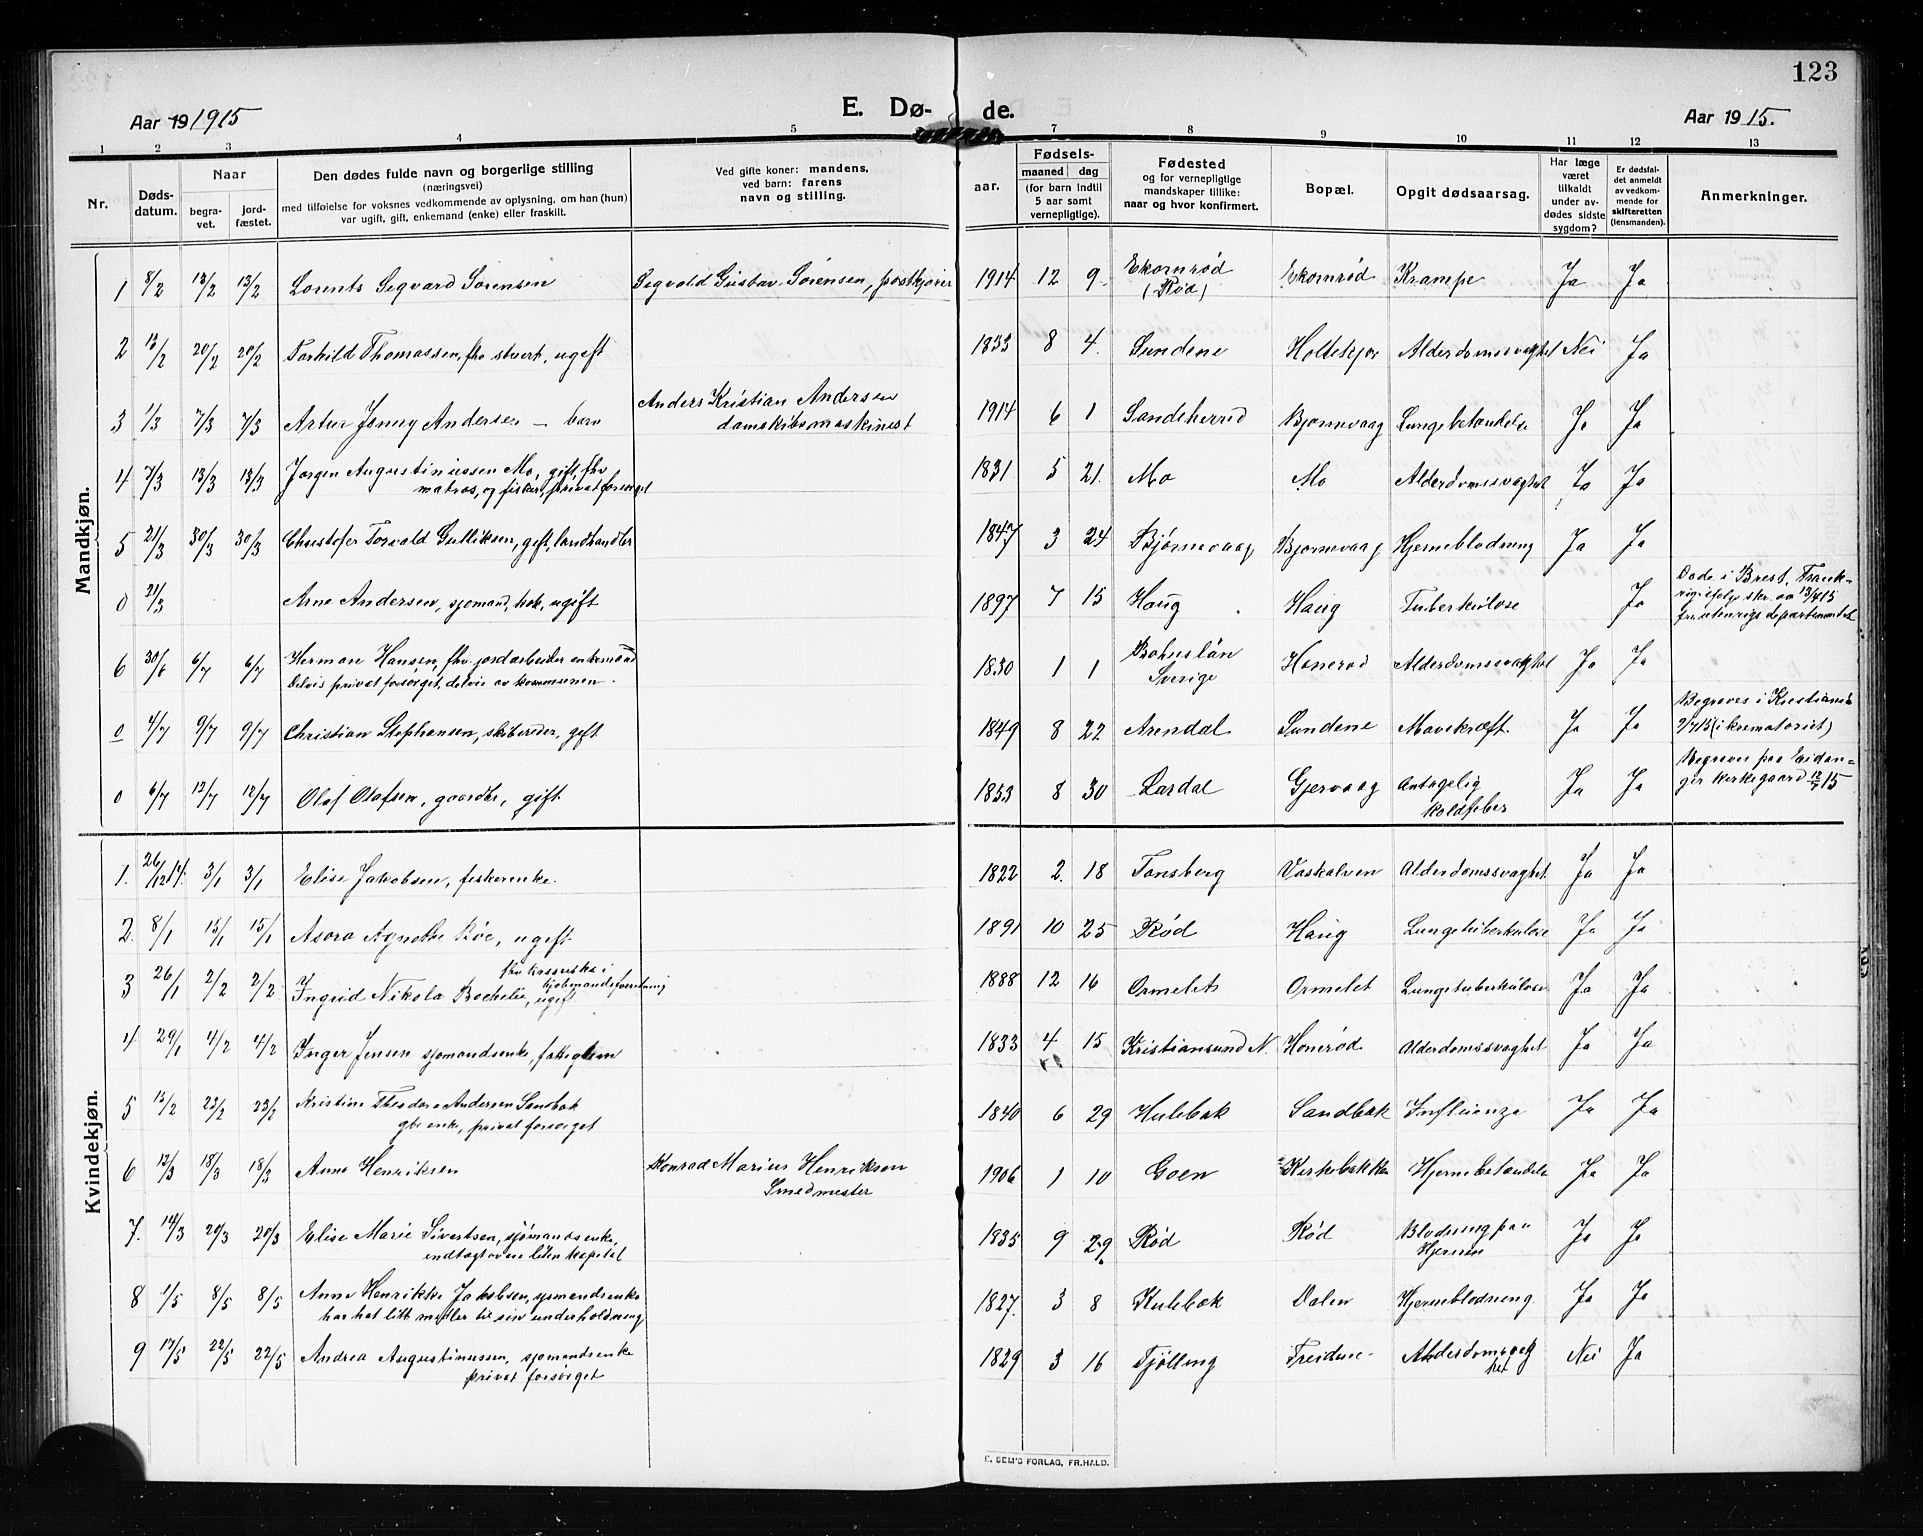 123
Aar 19 1915
E. Dø-
de.
Aar 1915.
1 2 3 4 5 7 8 9 10 11 12 13
Nr.
Døds-
datum.
Naar
begra-
vet.
jord-
fæstet.
Den dødes fulde navn og borgerlige stilling
(næringsvei)
med tilføielse for voksnes vedkommende av oplysning, om han (hun)
var ugift, gift, enkemand (enke) eller fraskilt.
Ved gifte koner: mandens,
ved barn: farens
navn og stilling.
aar.
Fødsels-
maaned dag
(for barn indtil
5 aar samt
vernepligtige).
Fødested
og for vernepligtige
mandskaper tillike:
naar og hvor konfirmert.
Bopæl.
Opgit dødsaarsag.
Har læge
været
tilkaldt
under av-
dødes sidste
sygdom?
Er dødsfal-
det anmeldt
av vedkom-
mende for
skifteretten
(lensmanden).
Anmerkninger.
Mandkjøn.
1 8/2 13/2 13/2 Lorents Segvard Sørensen Sigvald Gustav Sørensen, postkjører 1914 12 9 Ekornrød
(Rød) Ekornrød Krampe Ja Ja
2 13/2 20/2 20/2 Torkild Thomassen, fhv stuert, ugift 1833 8 4. Sundene Holtekjær Alderdomssvaghet Nei Ja
3 1/3 7/3 7/3 Artur Jonny Andersen - barn Anders Kristian Andersen
damskibsmaskinist 1914 6 1 Sandeherred Bjørnevaag Lungebetændelse Ja Ja
4 7/3 13/3 13/3 Jørgen Augustinussen Mo, gift, fhv
matros, og fisker, privat forsørget 1831 5 21. Mo Mo Alderdomssvaghet Ja Ja
5 21/3 30/3 30/3 Christofer Torvald Gulliksen, gift, landhandler 1847 3 24 Bjørnevaag Bjørnevaag Hjerneblødning Ja Ja
0 21/3 Arne Andersen, sjømand, kok, ugift 1897 7 15 Haug Haug Tuberkulose Ja Døde i Brest, Frank-
rig ifølge skr. av 13/4 15
fra utenrigsdepartementet
6 30/6 6/7 6/7 Herman Hansen, fhv. jordarbeider enkemand
Delvis privat forsørget, delvis av kommunen. 1830 1 1 Bohuslän
Sverige Honerød Alderdomssvaghet Ja Ja
0 4/7 9/7 9/7 Christian Stephansen, skibsreder, gift 1849 8 22 Arendal Sundene Mavekræft. Ja Ja Begraves i Kristiania
9/7 15 (i krematoriet)
0 6/7 12/7 12/7 Olaf Olafsen, gaardbr, gift 1853 8 30 Lardal Gjervaag Antagelig
koldfeber Ja Ja Begraves paa Eidan-
ger kirkegaard 12/7 15
Kvindekjøn.
1. 26/12 14. 3/1 3/1 Elise Jakobsen, fiskerenke. 1822 2. 18 Tønsberg Vaskalven Alderdomssvaghet. Ja Ja
2. 8/1 15/1 15/1 Asora Agnethe Röe, ugift 1891 10 25 Rød Haug Lungetuberkulose Ja Ja
3 26/1 2/2 2/2 Ingrid Nikola Bochelie, ugift
fhv kasserske i
kjøbmandsforretning 1888 12 16 Ormelet Ormelet Lungetuberkulose Ja Ja
4 29/1 4/2 4/2 Inger Jensen sjømandsenke, fatiglem 1833 4 15 Kristiansund N. Honerød Alderdomssvaghet Ja Ja
5 15/2 23/2 23/2 Kristine Theodora Andersen Sandbæk
gbr enke, privat forsørget 1840 6 29 Hulebak Sandbæk Influenza Ja Ja
6 12/3 18/3 18/3 Anna Henriksen Konrad Marius Henriksen
Smedmester 1906 1 10 Goen Kirkebakken Hjernebetændelse Ja Ja
7. 14/3 20/3 20/3 Elise Marie Sivertsen, sjømandsenke,
indtægt av en liten kapital 1835 9 29 Rød Rød Blødning paa
Hjernen Ja Ja
8 1/5 8/5 8/5 Anne Henrikke Jakobsen, sjømandsenke
har hat litt midler til sin underholdning, 1827. 3 8 Hulebak Dalen Hjerneblødning Ja Ja
9 17/5 22/5 22/5 Andrea Augustinussen, sjømandsenke
privat forsørget 1829 3 16 Tjølling Treidene Alderdomsvag
het Nei Ja
E. SEM'S FORLAG, FR.HALD.